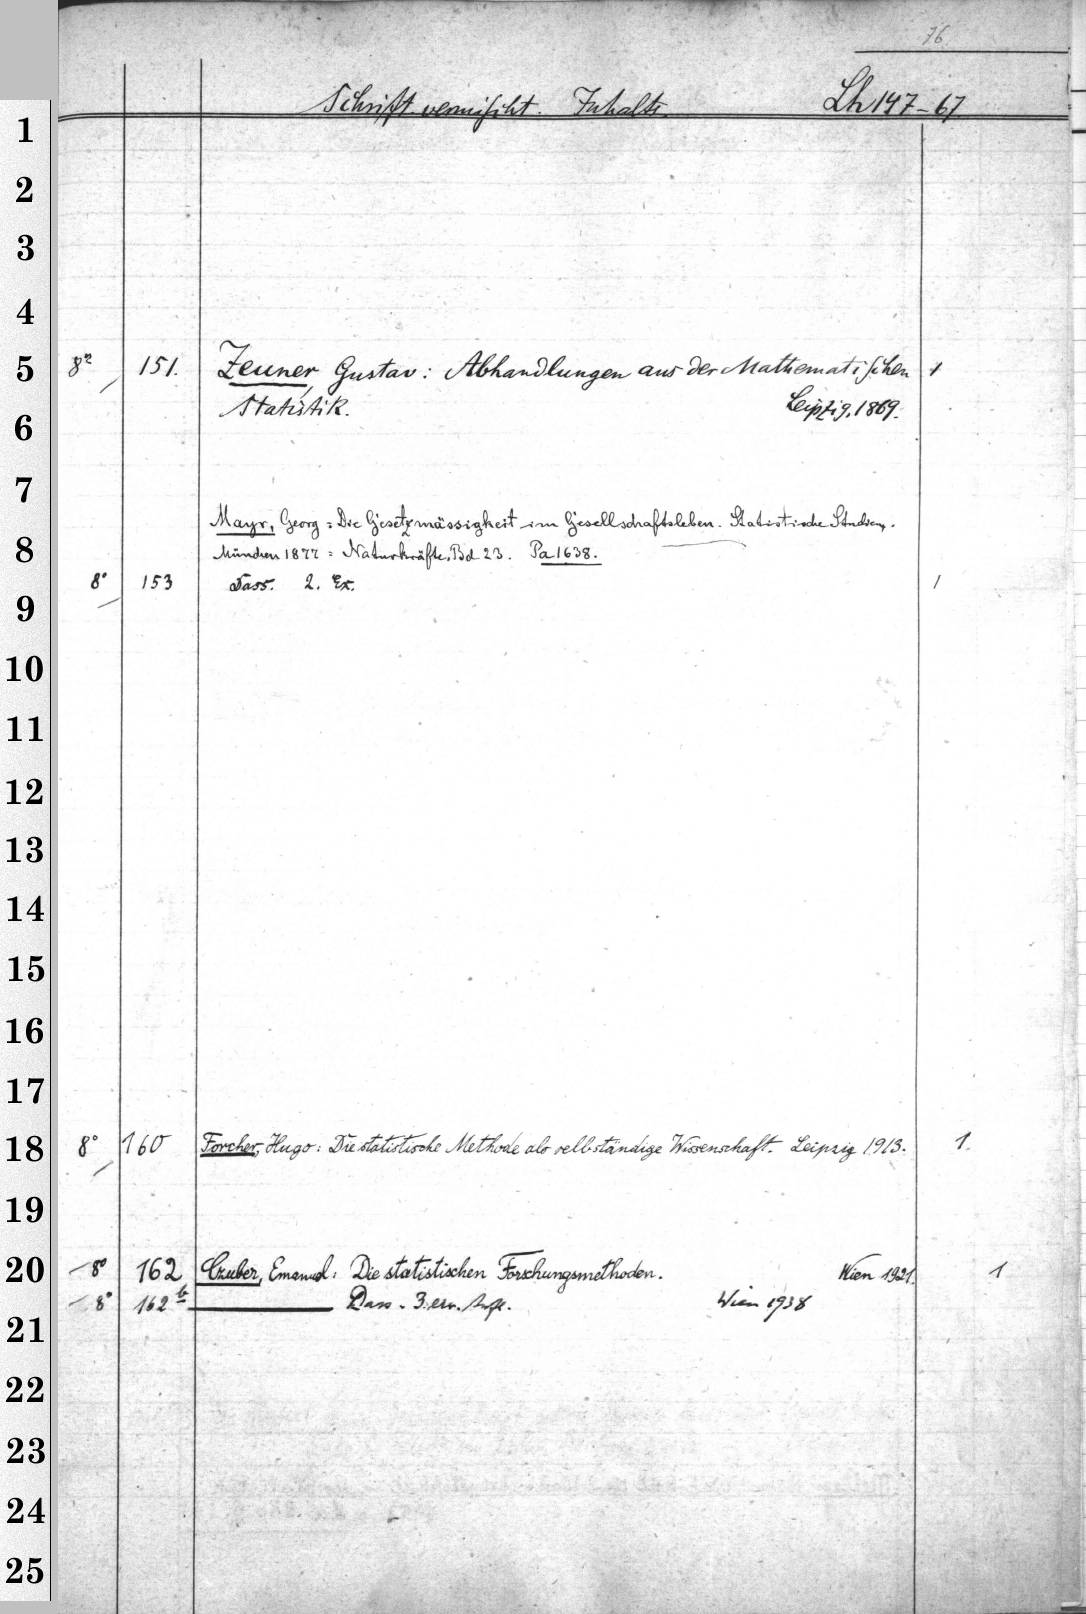 76
Schrift. vermischt. Inhalts. Lh 147-67
1
2
3
4
5 8° 151. Zeuner, Gustav: Abhandlungen aus der Mathematischen 1
Statistik. Leipzig, 1869.
6
7
Mayr, Georg: Die Gesetzmässigkeit im Gesellschaftsleben. Statistische Studien.
8 München 1877 = Naturkräfte, Bd 23. Pa 1638.
8° 153 Dass. 2. Ex. 1
9
10
11
12
13
14
15
16
17
18 8° 160 Forcher, Hugo: Die statistische Methode als selbständige Wissenschaft. Leipzig 1913. 1.
19
20 8° 162 Czuber, Emanuel: Die statistischen Forschungsmethoden. Wien 1921. 1
8° 162b Dass. 3. erw. Aufl. Wien 1938
21
22
23
24
25